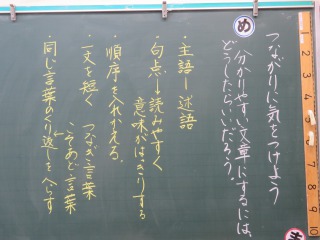 つながりに気をつけよう
め
分かりやすい文章にするには、
どうしたらいいだろう。
・主語―述語
・句点→読みやすく
意味がはっきりする
・順序を入れかえる。
・一文を短く つなぎ言葉
こそあど言葉
・同じ言葉のくり返しをへらす
1
2
3
4
5
6
7
8
9
10
ま